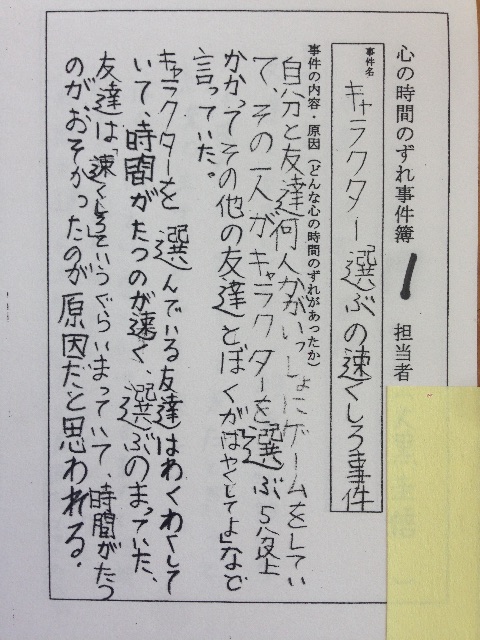 心の時間のずれ事件簿 1 担当者
事件名
キャラクター選ぶの速くしろ事件
事件の内容・原因(どんな心の時間のずれがあったか)
自分と友達何人かがいっしょにゲームをしてい
て、その一人がキャラクターを選ぶ5分以上
かかってその他の友達とぼくが「はやくしてよ」など
言っていた。
キャラクターを選んでいる友達はわくわくして
いて、時間がたつのが速く、選ぶのまっていた、
友達は「速くしろ」ていうぐらいまっていて、時間がたつ
のが、おそかったのが原因だと思われる.